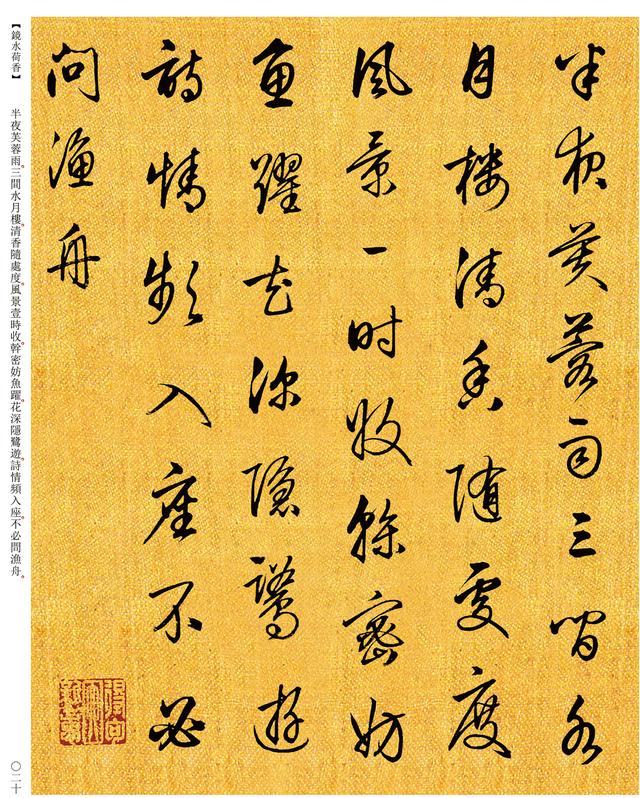 半夜芙蓉雨三間水
月樓清香隨處度
風景一時收幹密妨
魚躍花深隱鷺遊
詩情頻入座不必
問漁舟
【鏡水荷香】
半夜芙蓉雨。三間水月樓。清香隨處度。風景壹時收。幹密妨魚躍。花深隱鷺遊。詩情頻入座。不必問漁舟。
〇二十